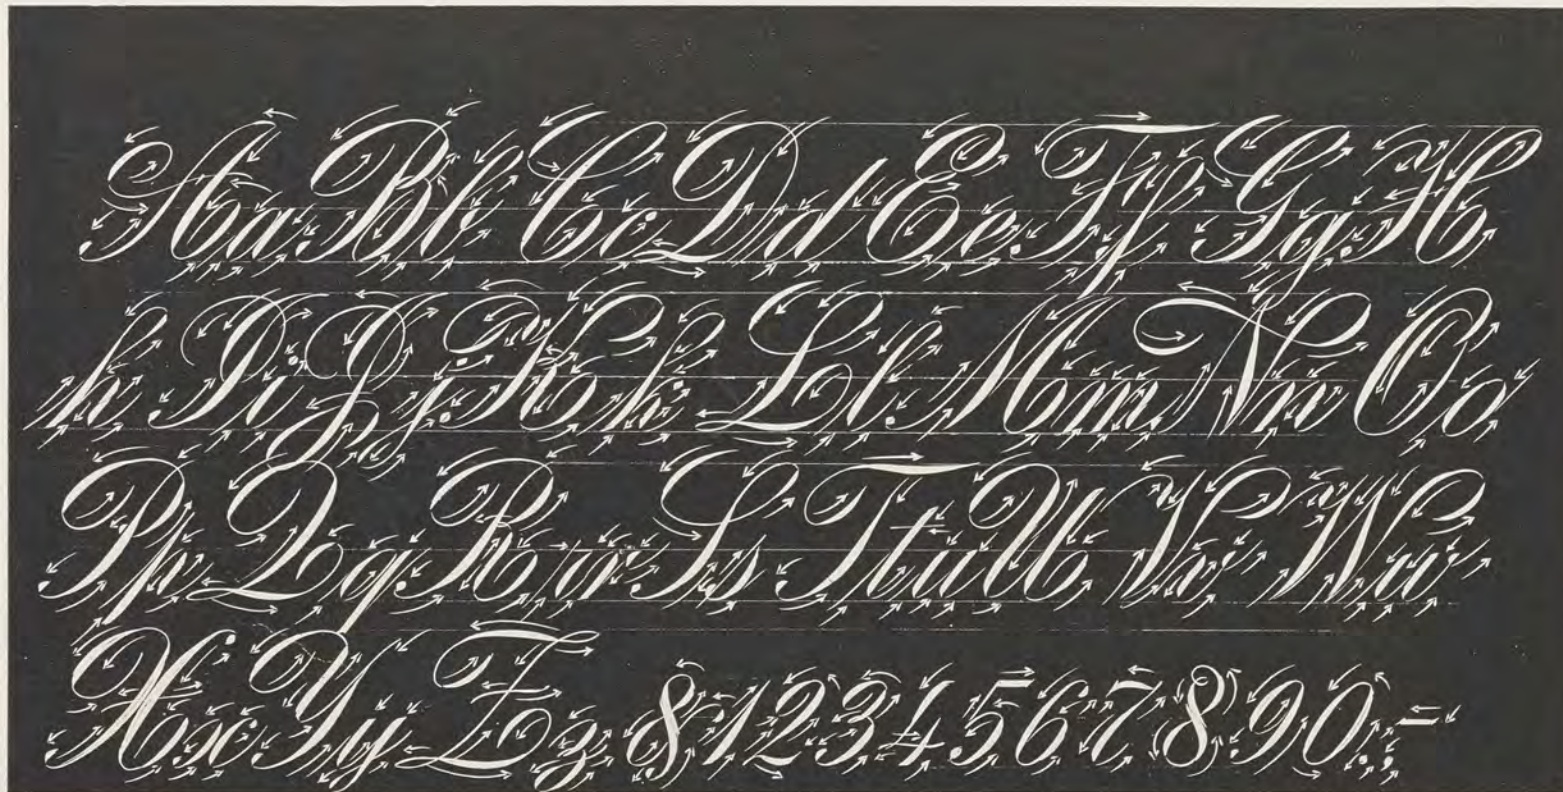 Aa Bb Cc Dd Ee. Ff Gg. H
h Ii Jj. Kk. Ll. Mm Nn Oo
Pp Qq. Rr Ss Tt u U Vv Ww
Xx Yy Zz & 1 2 3 4 5 6 7 8 9 0 . , -